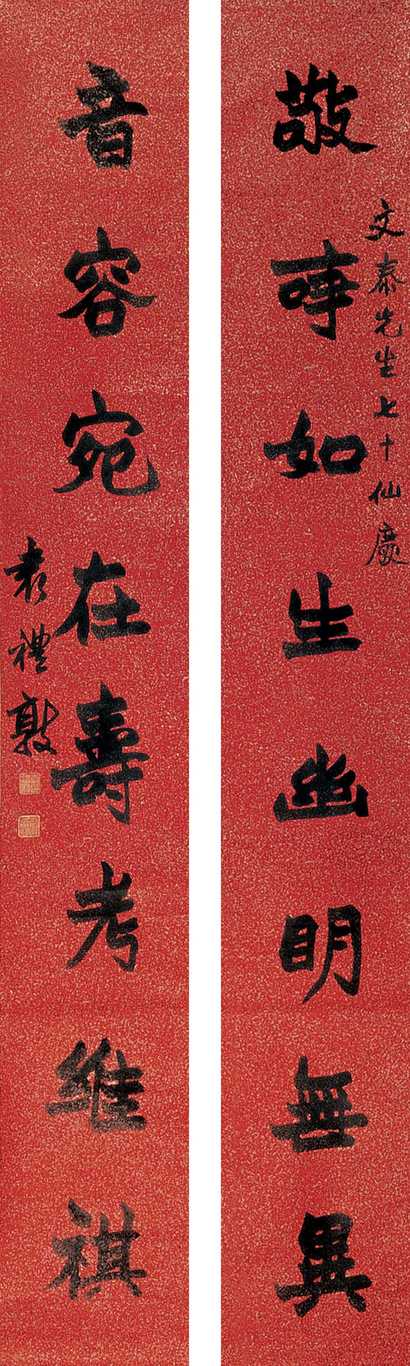 文泰先生七十仙慶
敬事如生幽明無異
音容宛在壽考維祺
袁禮敦